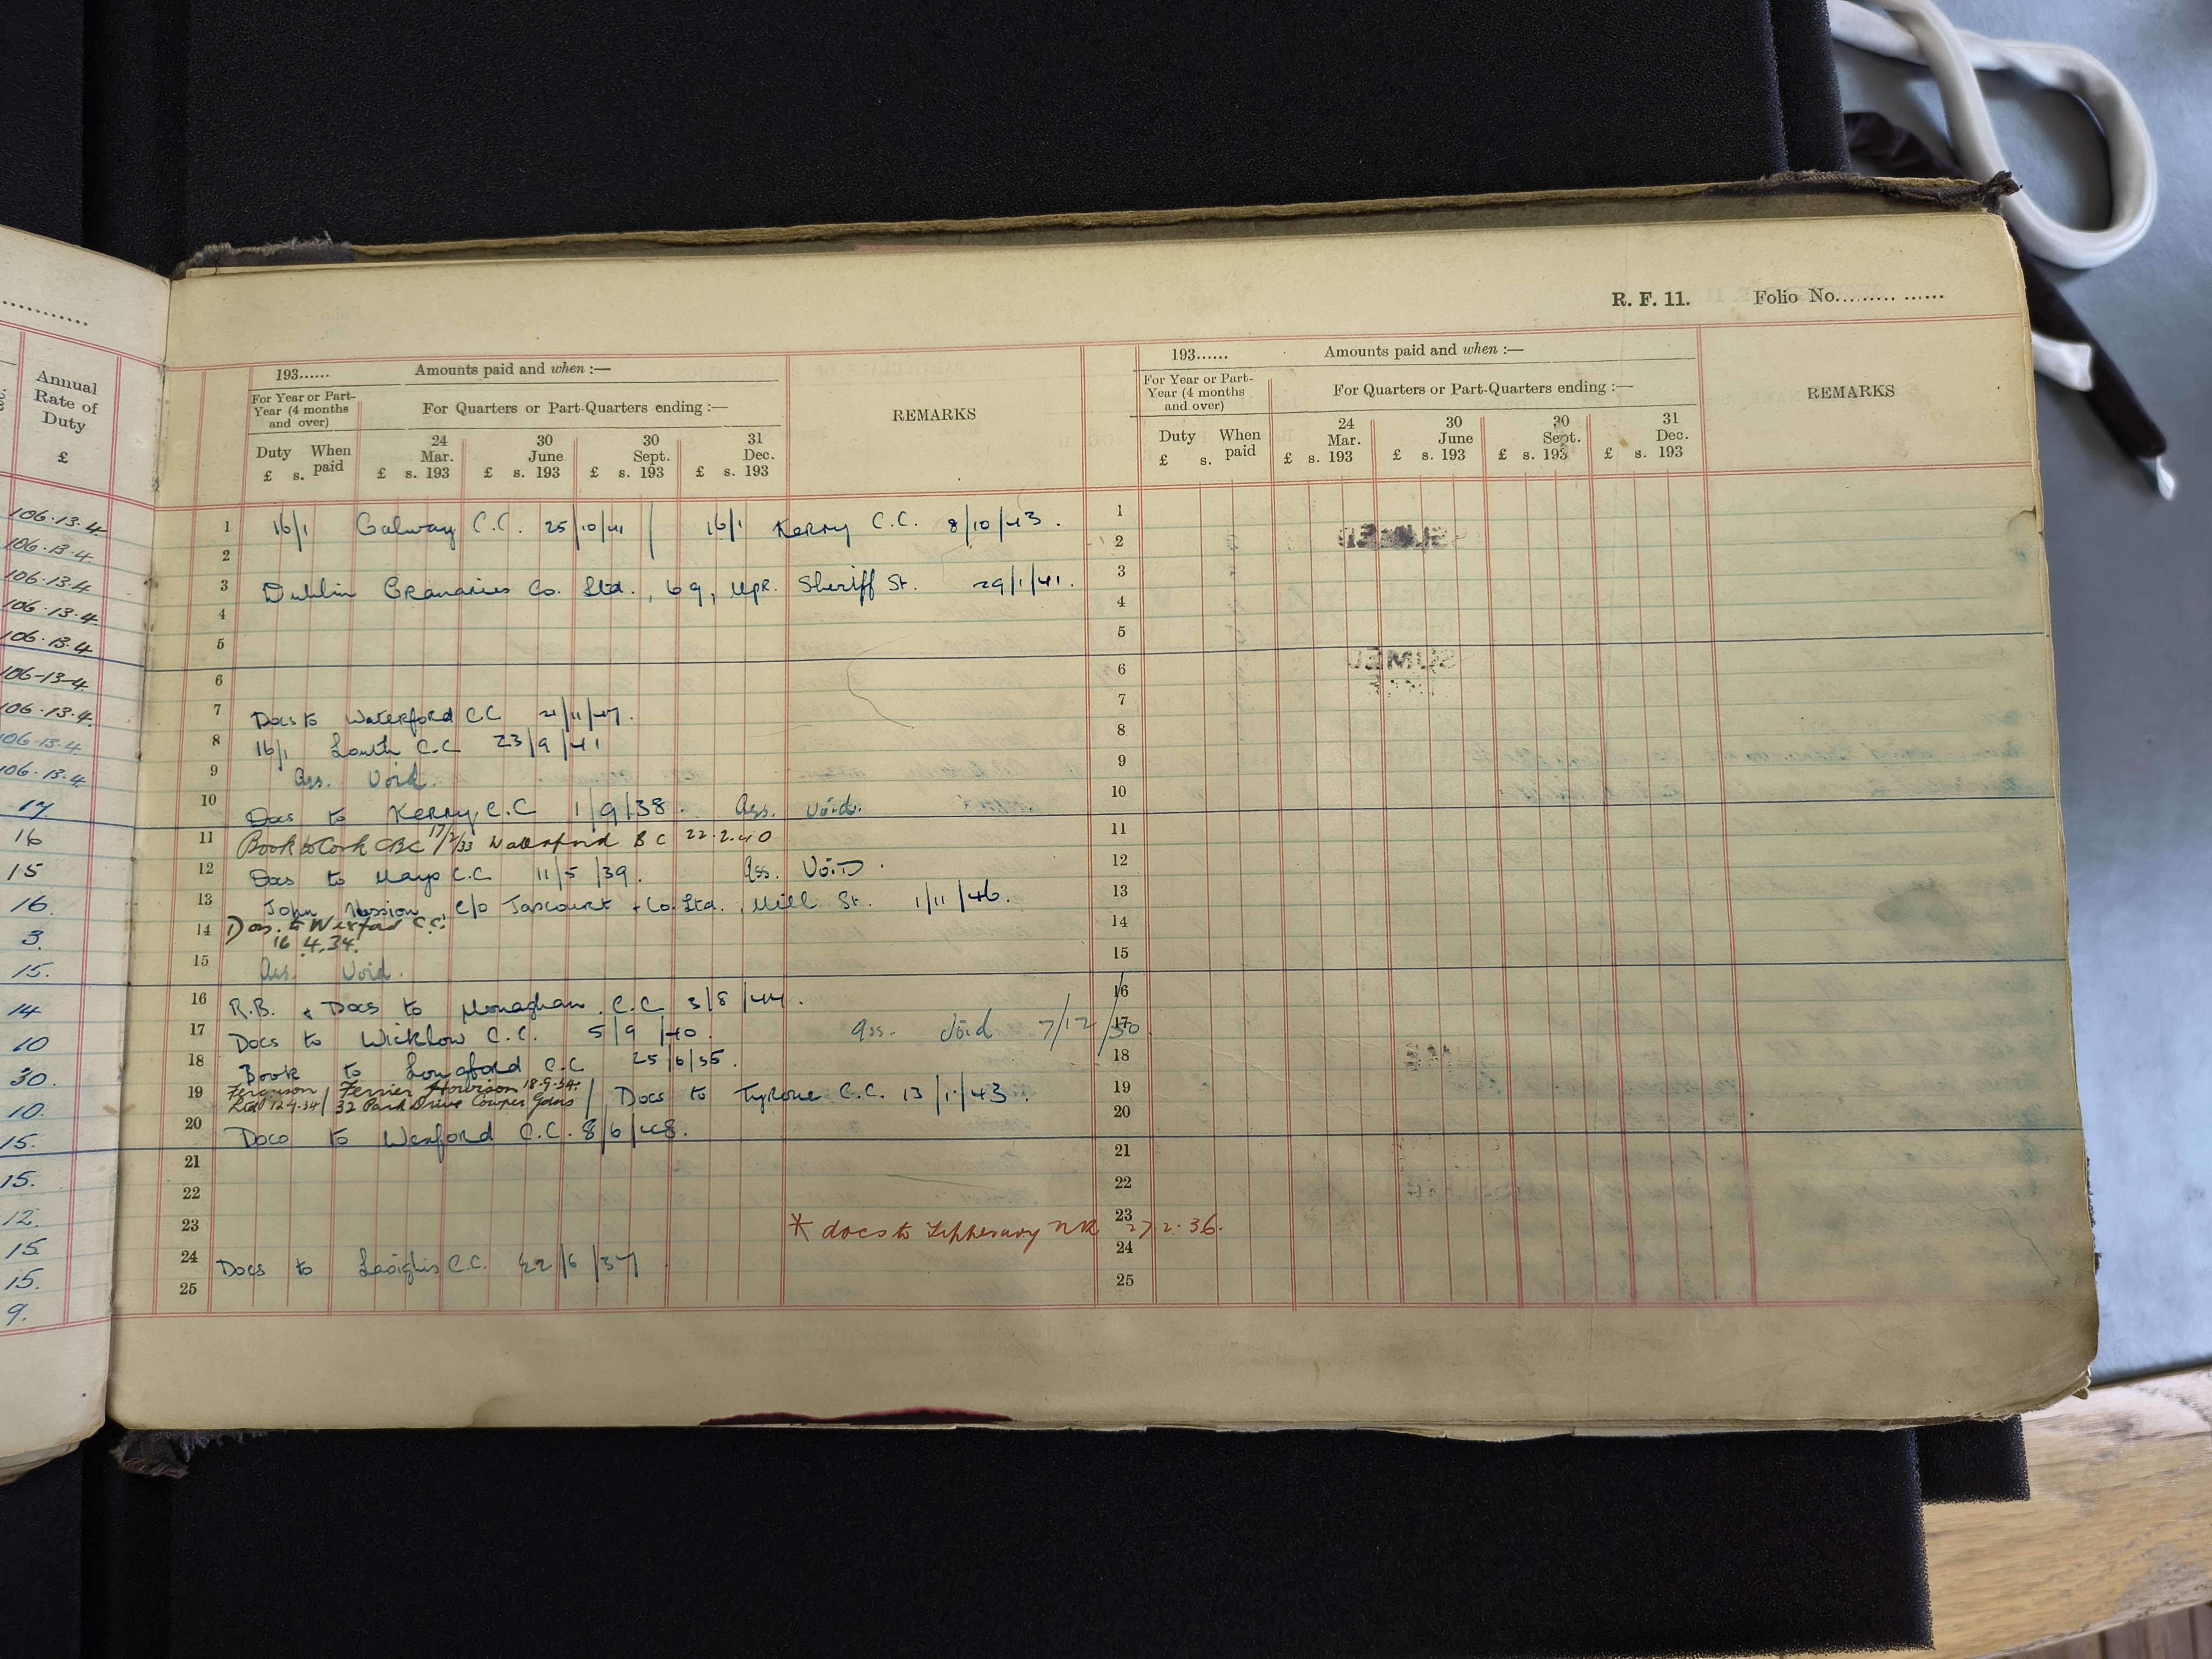 R. F. 11. Folio No...............
Annual
Rate of
Duty
£
193......
Amounts paid and when :—
For Year or Part-
Year (4 months
and over)
For Quarters or Part-Quarters ending :—
Duty When
paid
£ s.
24
Mar.
£ s. 193
30
June
£ s. 193
30
Sept.
£ s. 193
31
Dec.
£ s. 193
REMARKS
193......
Amounts paid and when :—
For Year or Part-
Year (4 months
and over)
For Quarters or Part-Quarters ending :—
Duty When
paid
£ s.
24
Mar.
£ s. 193
30
June
£ s. 193
30
Sept.
£ s. 193
31
Dec.
£ s. 193
REMARKS
106.13.4
106.13.4
106.13.4
106.13.4
106.13.4
106-13-4
106.13.4
106.13.4
106.13.4
17
16
15
16
3.
15.
14
10
30.
10.
15.
15.
12.
15.
15.
9.
1 16/1 Galway C.C. 25/10/41 / 16/1 Kerry C.C. 8/10/43.
2
3 Dublin Granaries Co. Ltd., 69, Upr. Sheriff St. 29/1/41.
4
5
6
7 Docs to Waterford C.C 21/11/47.
8 16/1 Louth C.C 23/9/41
9 Ass. Void.
10 Docs to Kerry C.C 1/9/38. Ass. Void.
11 Book to Cork CBC 17/2/33 Waterford B C 22.2.40
12 Docs to Mayo C.C 11/5/39. Ass. Void.
13 John Hession, c/o Tascourt & Co. Ltd., Mill St. 1/11/46.
14 Docs. to Wexford C.C.
16.4.34.
15 Ass. Void.
16 R.B. & Docs to Monaghan C.C 3/8/44.
17 Docs to Wicklow C.C. 5/9/40. Ass. Void 7/12/30.
18 Book to Longford C.C 25/6/35.
19 Ferguson / Ferrier Howison 18.9.34.
Ltd 12.9.34 / 32 Park Drive Cowper Gdns / Docs to Tyrone C.C. 13/1/43.
20 Docs to Wexford C.C. 8/6/48.
21
22
23 * docs to Tipperary NR 27 2.36.
24 Docs to Laoighis C.C. 22/6/37
25
1
2
3
4
5
6
7
8
9
10
11
12
13
14
15
16
17
18
19
20
21
22
23
24
25